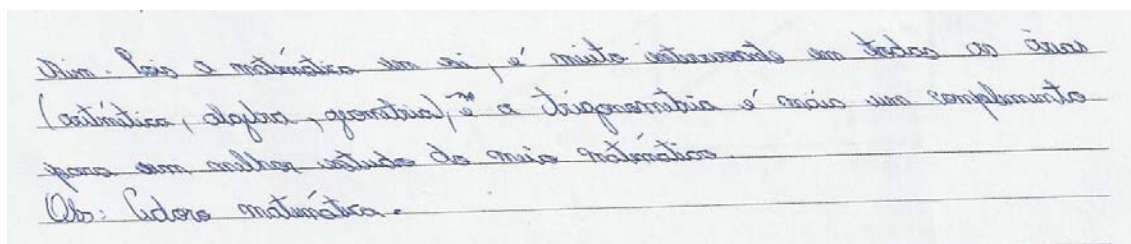 Sim. Pois a matemática em si, é muito interessante em todas as áreas
(aritmética, algebra, geometria), e a trigonometria é mais um complemento
para um melhor estudo do meio matemático.
Obs: Adoro matemática.